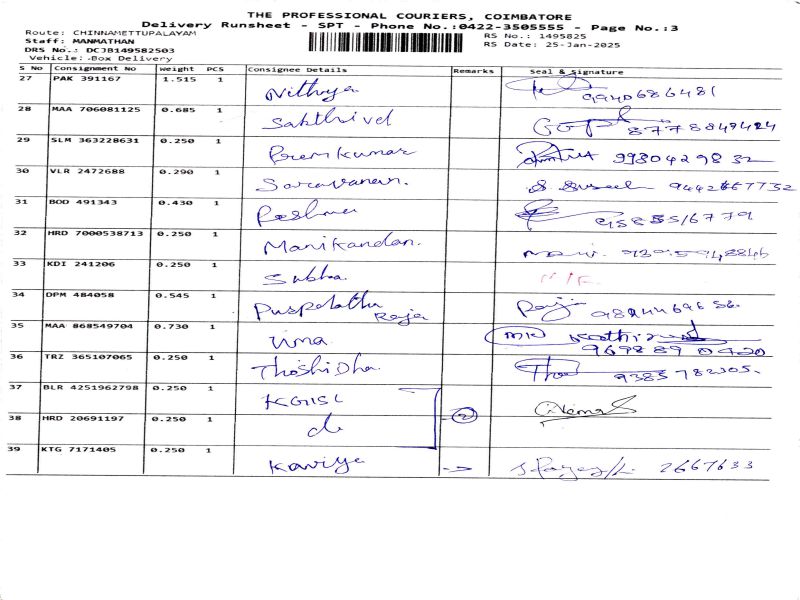 THE PROFESSIONAL COURIERS, COIMBATORE
Delivery Runsheet - SPT - Phone No.:0422-3505555 - Page No.:3
Route: CHINNAMETTUPALAYAM
Staff: MANMATHAN
DRS No.: DCJB149582503
Vehicle: Box Delivery
RS No.: 1495825
RS Date: 25-Jan-2025
S No Consignment No Weight PCS Consignee Details Remarks Seal & Signature
27 PAK 391167 1.515 1 Nithya 9940686481
28 MAA 706081125 0.685 1 Sakthivel 8778849424
29 SLM 363228631 0.250 1 Premkumar 9930429832
30 VLR 2472688 0.290 1 Saravanan. 9442667732
31 BOD 491343 0.430 1 Reshma
32 HRD 7000538713 0.250 1 Manikandan.
33 KDI 241206 0.250 1 Subha.
34 DPM 484058 0.545 1 Puspalatha Raja
35 MAA 868549704 0.730 1 Uma 9698890420
36 TRZ 365107065 0.250 1 Thoshidha
37 BLR 4251962798 0.250 1 KGISL
38 HRD 20691197 0.250 1 do 2
39 KTG 7171405 0.250 1 Kaviya 2667633